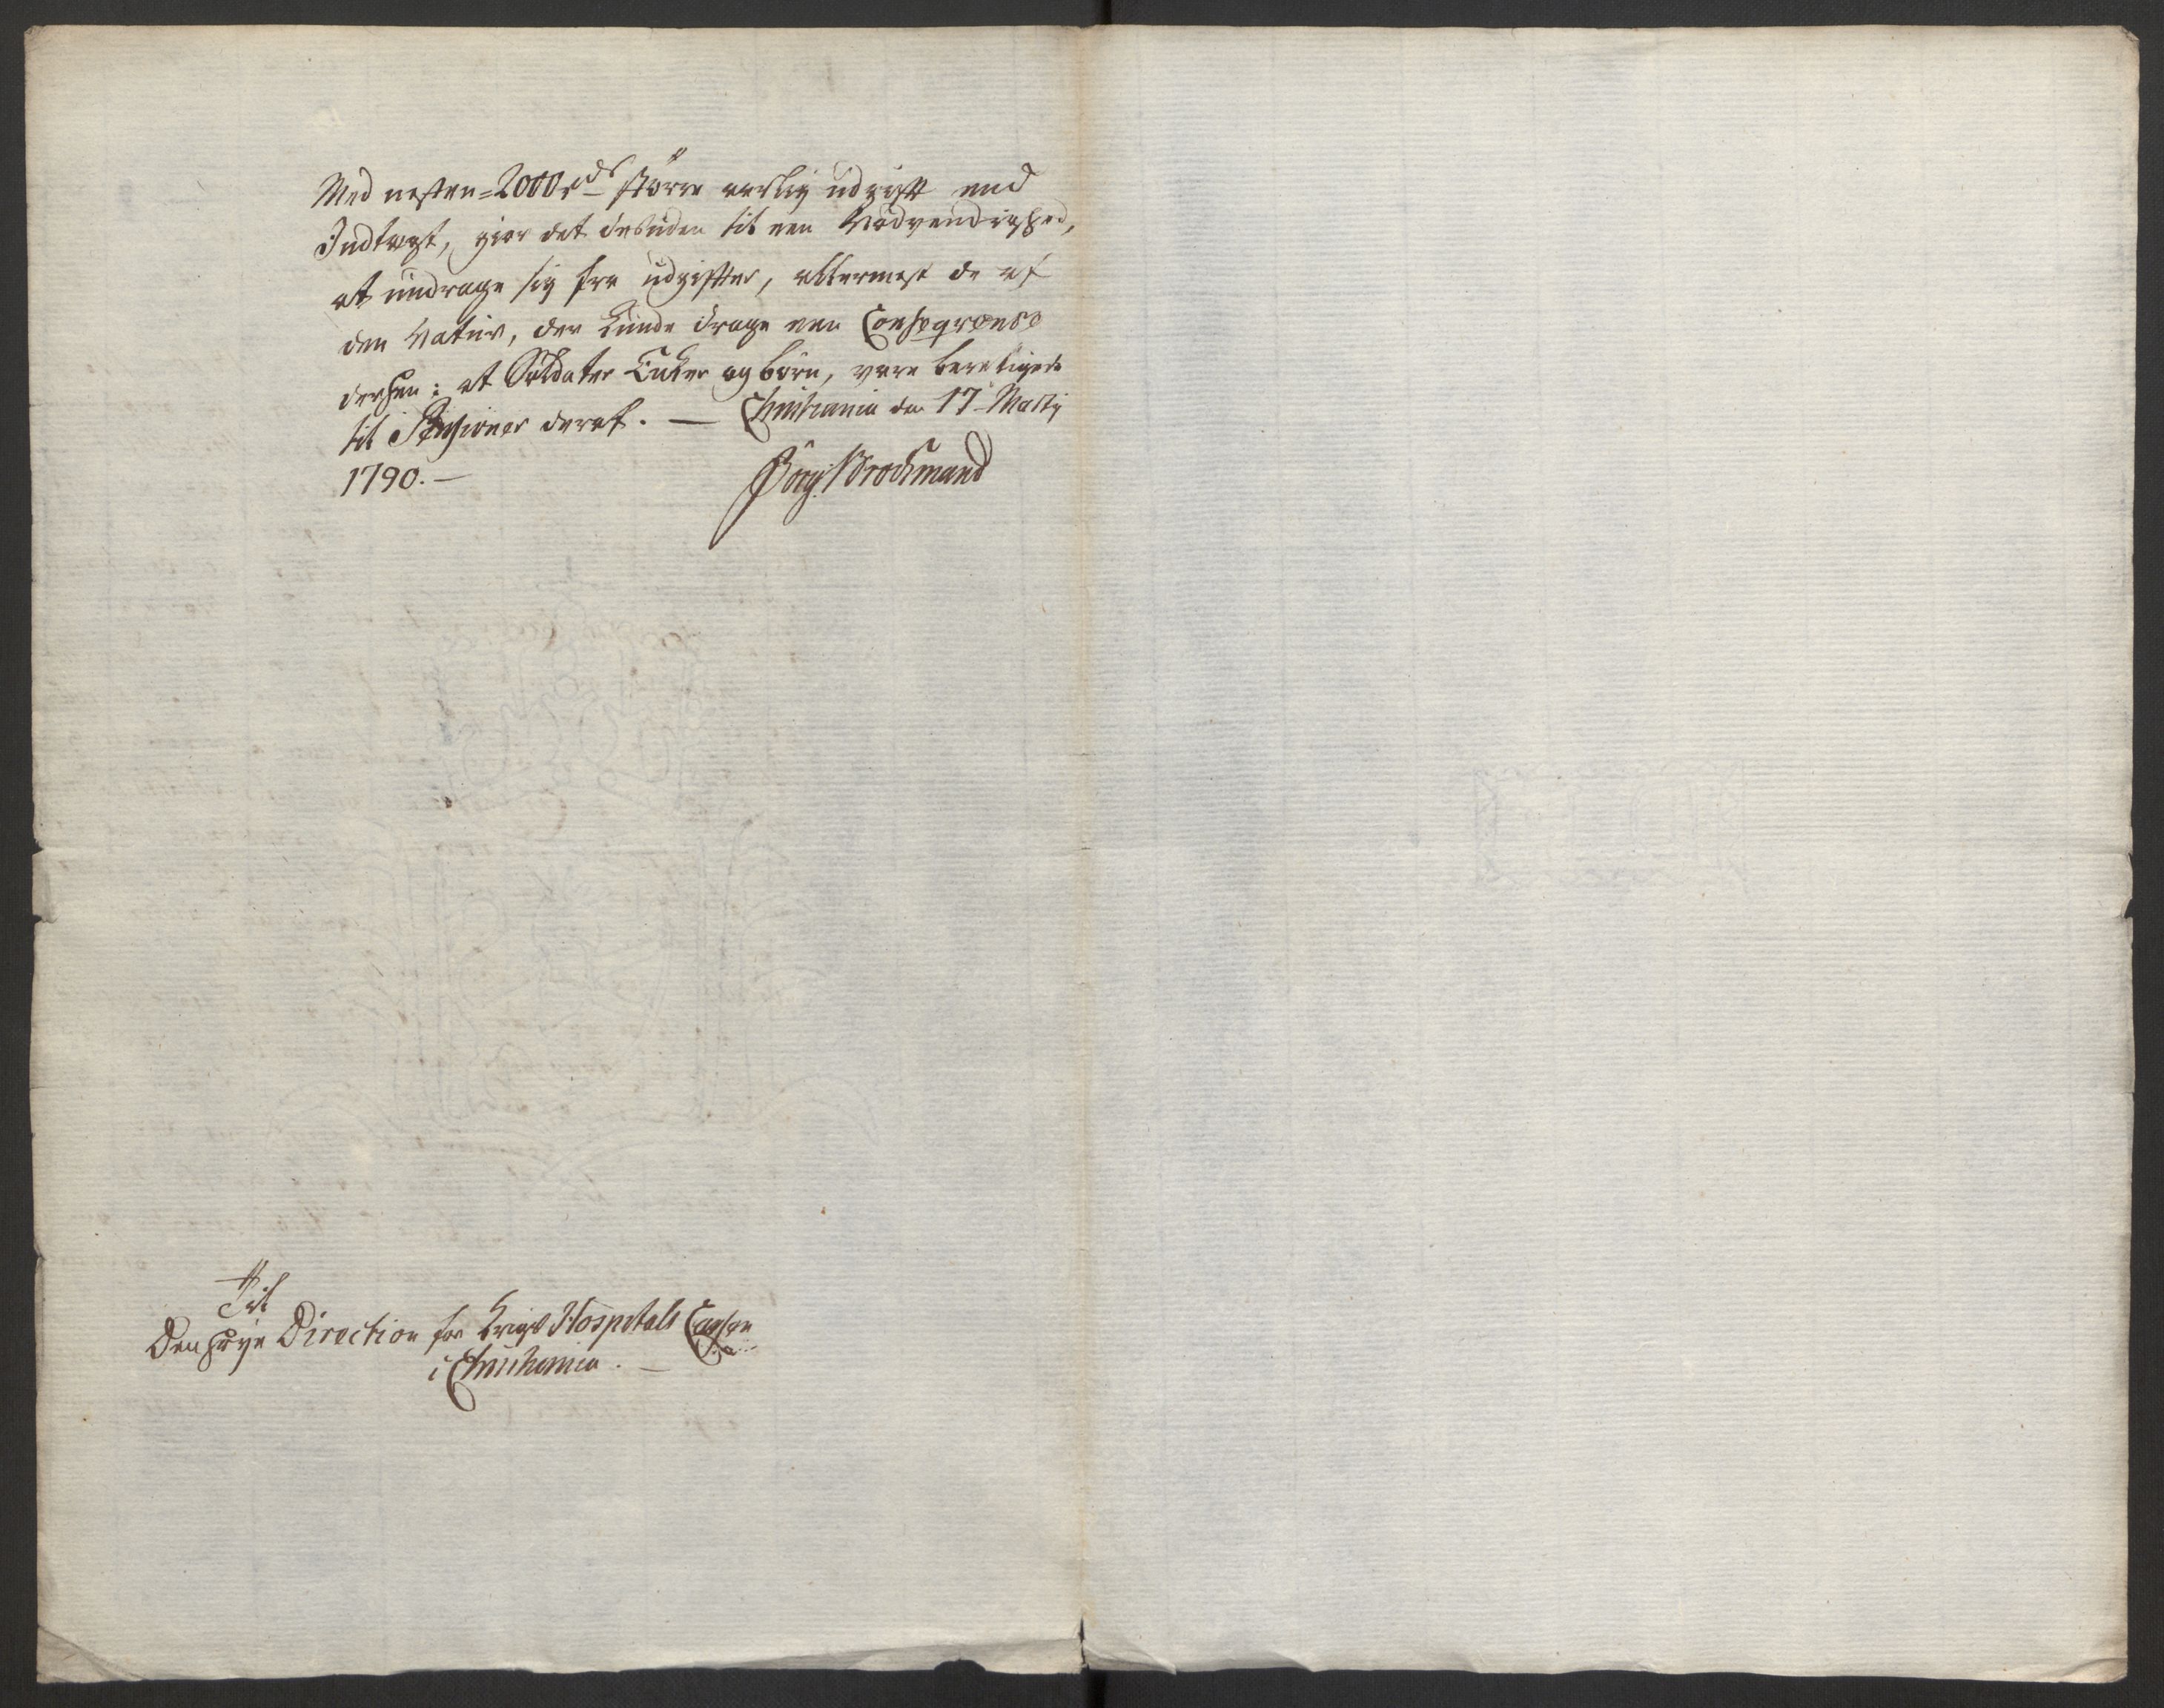 Med nesten = 2000 rds större aarlig udgift end
Indtægt, giør det desuden til een Nödvendighed,
at unddrage sig fra udgifter, allermest de af
den Natur, der kunde drage een Conseqvense
derhen: at Soldater Enker og börn, vare beretigede
til Pensioner deraf. — Christiania den 17 Martij
1790. —
Brochmand
Til
Den høye Direction for Krigs Hospitals Cassen
i Christiania. —